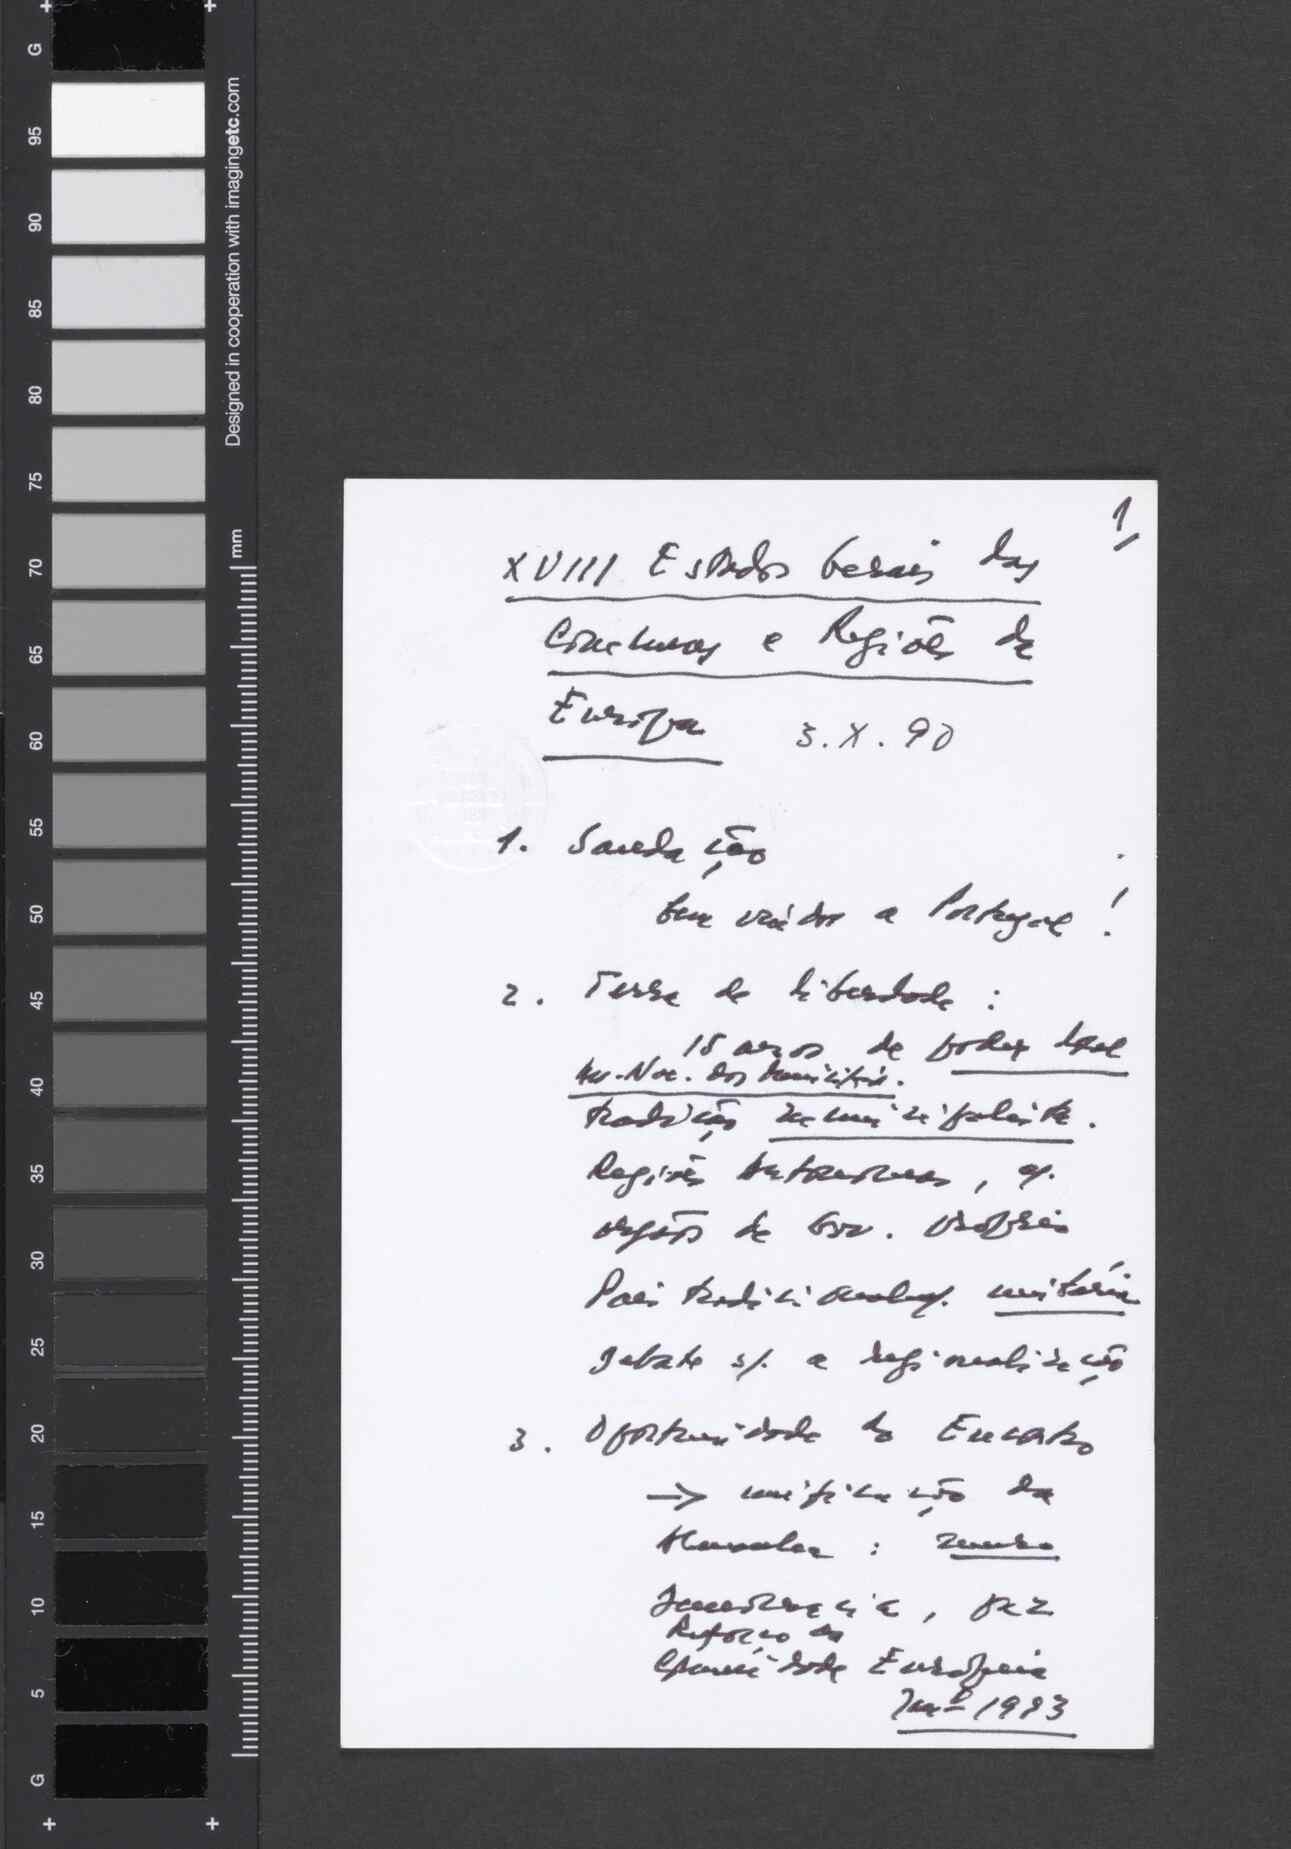 G
95
90
85
80
75
70
65
60
55
50
45
40
35
30
25
20
15
10
5
G
Designed in cooperation with imagingetc.com
mm
1
XVIII Estados Gerais das
Comunas e Regiões da
Europa 3.X.90
1. Saudação
bem vindos a Portugal!
2. Terra de liberdade:
15 anos de poder local
As. Nac. dos Municípios.
tradição municipalista.
Regiões Autónomas, c/.
orgãos de Gov. próprio
País tradicionalm. unitário
Debate s/. a regionalização
3. Oportunidade do Encontro
→ unificação da
Alemanha:
democracia, paz
Reforço da
Comunidade Europeia
1993